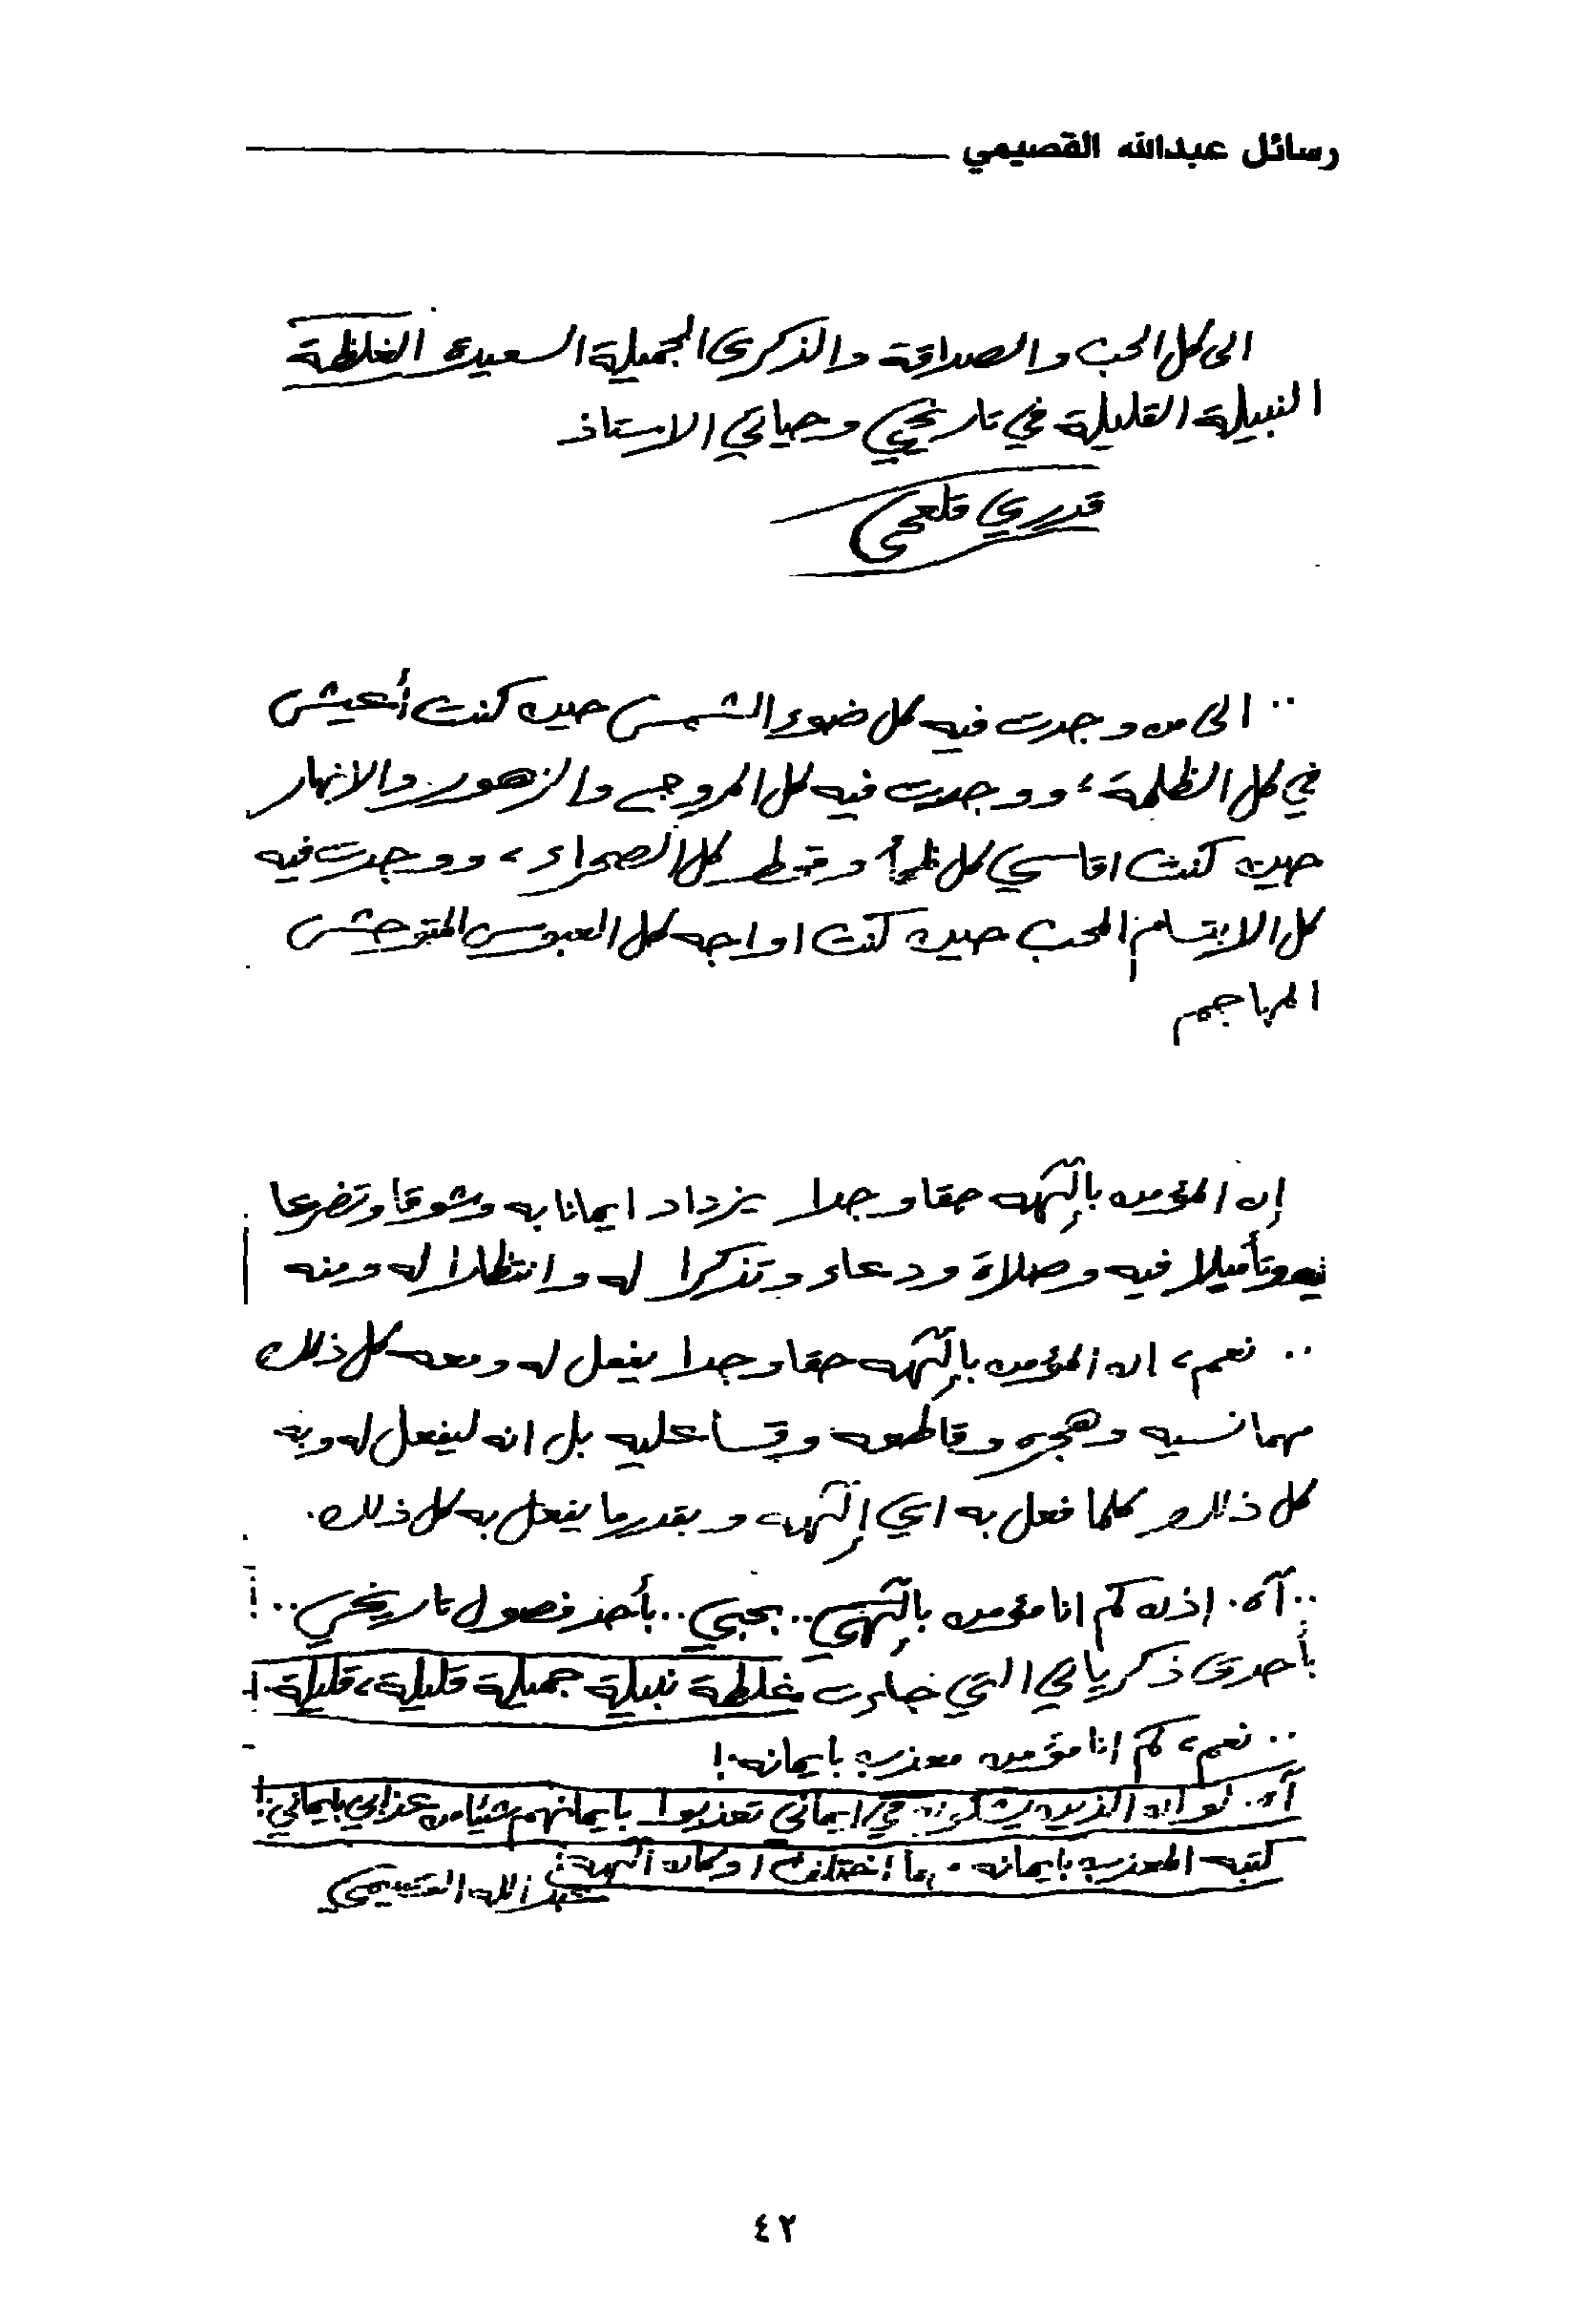 رسائل عبدالله القصيمي
الى كل الحب والصداقة والذكرى الجميلة السعيدة الغلطة
النبيلة القليلة في تاريخي وحياتي الاستاذ
قدري قلعجي
.. الى من وجدت فيه كل ضوء الشمس حين كنت أعيش
في كل الظلمة، ووجدت فيه كل المروج والزهور والانهار
حين كنت اقاسي كل ظمأ وقحط كل الصحراء، ووجدت فيه
كل الابتسام المحب حين كنت اواجه كل العبوس المتوحش
المهاجم
إن المؤمن بإلٓهه حقا وجدا يزداد ايمانا به وشوقا وتضرعا
وتأميلا فيه وصلاة ودعاء وتذكرا له وانتظارا له ومنه
.. نعم، ان المؤمن بإلٓهه حقا وجدا يفعل له ومعه كل ذلك
مهما نسيه وهجره وقاطعه وقسا عليه بل انه ليفعل له وبه
كل ذلك كلما فعل به اي إلٓهه وبقدر ما يفعل به كل ذلك.
..آه. إذن كم انا مؤمن بإلٓهي.. بحبي.. بأحد فصول تاريخي..!
بأحدى ذكرياتي التي جاءت غلطة نبيلة جميلة قليلة، قليلة.!
.. نعم، كم انا مؤمن معذب بايمانه.!
آه. لو ان الذين يشكون في ايماني تعذبوا بايمانهم شيئا من عذابي بايماني!
كتبه المعذب بايمانه. ما اختلفت او كان آلهة!
عبدالله القصيمي
٤٢